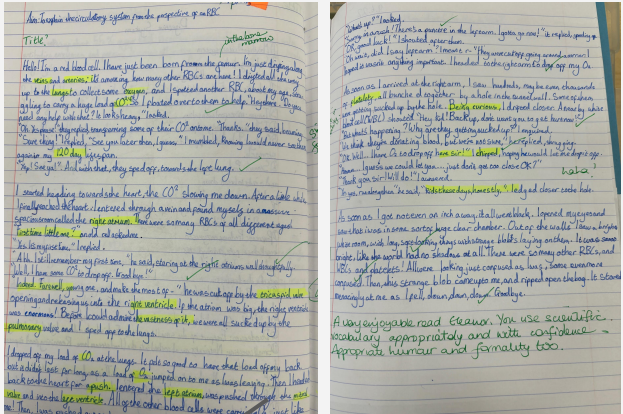 Aim: To explain the circulatory system from the perspective of an RBC
Title?
in the bone
marrow
Hello! I'm a red blood cell. I have just been born from the femur. I'm just drifting along
the veins and arteries; it's amazing how many other RBCs are here! I drifted all the way
up to the lungs to collect some oxygen, and I spotted another RBC, about my age,
to carry a huge load of CO². So I floated over to them to help. "Hey there. Do you
need any help with that? It looks heavy," I asked.
"Oh, it's
replied, transporting some of their CO² onto me. "Thanks." they said,
"Sure thing!" I replied. "See you later then, I guess." I mumbled, knowing I would never see them
again in my 120 day lifespan.
"Yep! See ya!" And with that, they sped off, towards the left lung.
I started heading toward the heart, the CO² slowing me down. After a little while
I finally reached the heart. I entered through a vein and found myself in a massive
spacious room called the right atrium. There were so many RBCs of all different ages!
"First time little me?" an old cell asked me.
"Yes. It's my first one," I replied.
"Ahh. I still remember my first one," he said, staring at the right atrium's wall
"Well! I have some CO² to drop off. Good bye!"
"Indeed. Farewell, young one, and make the most of-" he was cut off by the tricuspid valve
opening and releasing us into the right ventricle. If the atrium was big, the right ventricle
was enormous! Before I could admire the vastness of it, we were all sucked up by the
pulmonary valve and I sped off to the lungs.
I dropped off my load of CO₂ at the lungs. It felt so good to have that load off my back
but it didn't last for long, as a load of O₂ jumped on to me as I was leaving. Then I headed
back to the heart for a push. I entered the left atrium, was pushed through the mitral
valve and into the left ventricle. All of the other blood cells were
just like
me! Then, I was
"What's up?" I asked.
"Sorry, in a rush! There's a puncture in the left arm. I gotta go now!" it replied, speeding
"OK, good luck!" I shouted after them.
Oh wait, did I say left arm? I meant
they were cut off going around a corner. I
hoped it wasn't anything important. I headed to the right arm to drop off my O₂.
As soon as I arrived at the right arm, I saw hundreds, may be even thousands
of platelets, all bunched together by a hole in the tunnel wall. Some of them
were being sucked up by the hole. Being curious, I edged closer. A nearby white
blood cell (WBC) shouted "Hey kid! Back up, don't want you to get
"But what's happening? Why are they getting sucked up?" I enquired.
"We think they're donating blood, but we're not sure," he replied, shrugging.
"OK. Well... I have O₂ to drop off here sir!" I chirped, hoping he would let me drop it off.
I guess we could let you... just don't go too close OK?"
"Thank you sir! Will do!" I answered.
he said, "Kids these days, honestly." I edged closer to the hole.
haha
As soon as I got not even an inch away, it all went black. I opened my eyes and
saw that I was in some sort of huge clear chamber. Out of the walls I saw a bright
white room, with long, sage looking things with strange blobs laying on them. It was so
bright, like the world had no shadows at all. There were so many other RBCs, and
WBCs and platelets! All were looking just as confused as I was, some even more
confused. Then, this strange blob came up to me, and ripped open the bag. It stared
menacingly at me as I fell, down, down, down. Goodbye.
A very enjoyable read Eleanor. You use scientific
vocabulary appropriately and with confidence -
Appropriate humour and formality too.